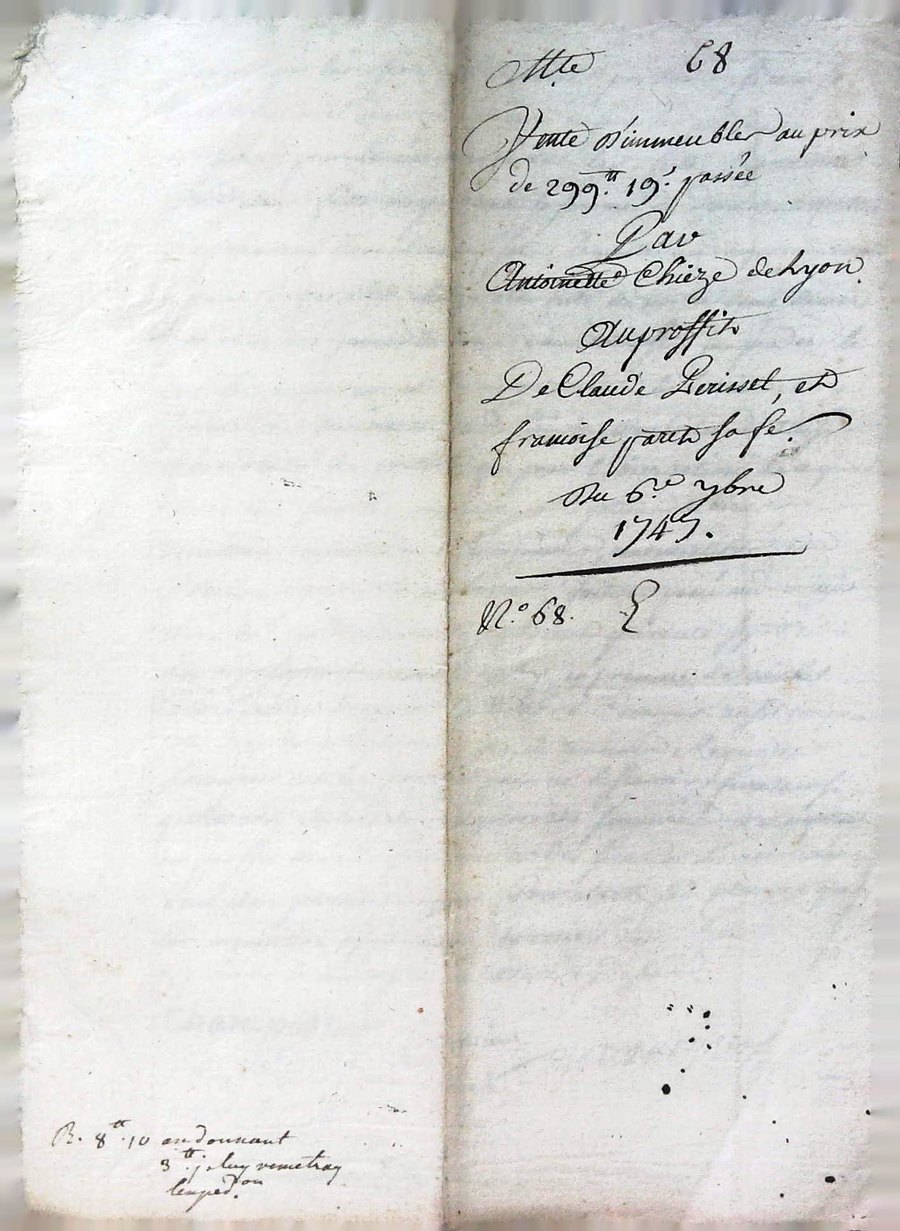 68
Vente d'immeubles au prix
de 299tt 19s passée
Par
Antoinette Chieze de Lyon
Au proffit
De Claude Perisset, et
francoise paret sa fe.
Du 6.e 7bre
1747.
N.o 68.
R. 8tt 10 en donnant
3tt j luy remetray
l'exped.on